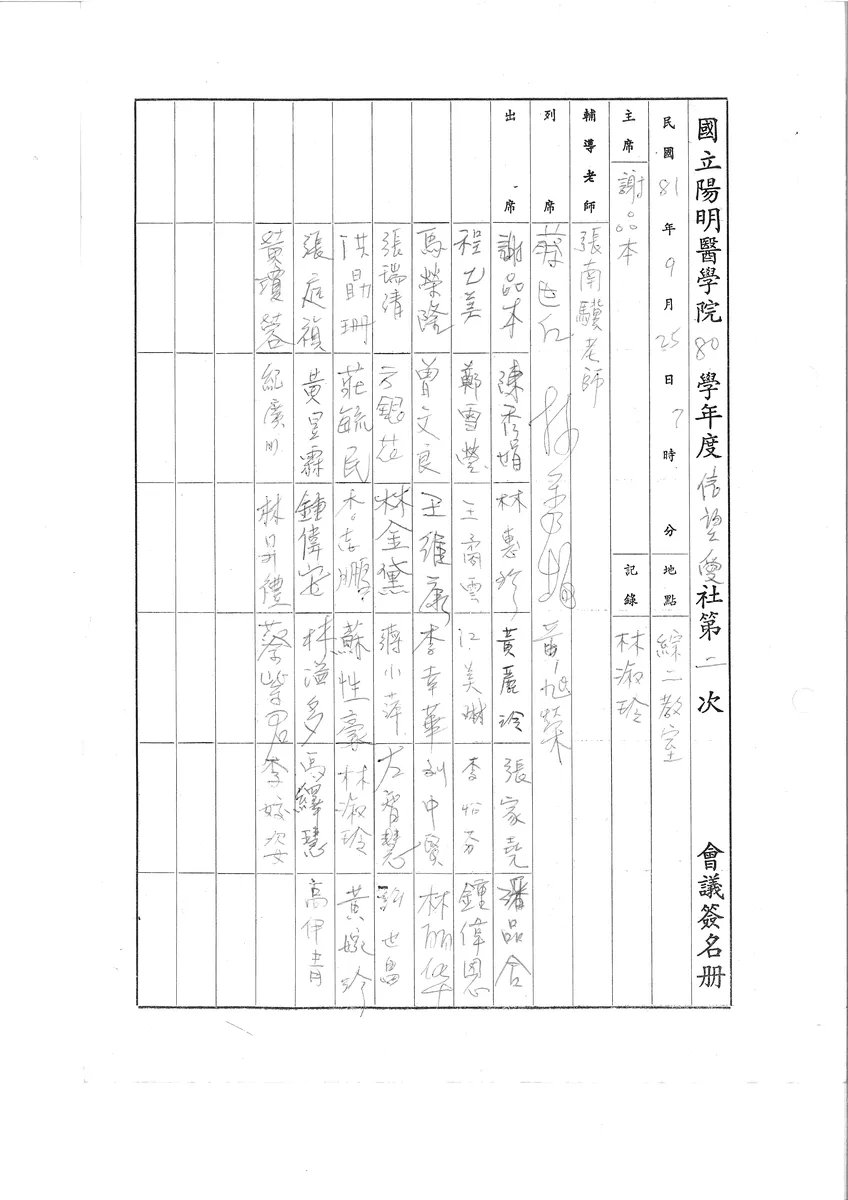 國立陽明醫學院80學年度信望愛社第二次 會議簽名册
民國81年9月25日7時 分 地點 綜二教室
主席 謝品本 記錄 林淑玲
輔導老師 張南驥老師
列席 黃旭榮
出席 謝品本 陳秀娟 林惠珍 黃麗玲 張家堯 潘品合
程文美 鄭雪瑩 王喬雲 江美琳 李怡芬 鍾偉恩
馬榮隆 曾文良 王維康 李幸華 劉中賢 林丽华
張瑞清 方銀花 林金黛 蔣小萍 左智慧 許世昌
洪鼎珊 莊毓民 李志鵬 蘇性豪 林淑玲 黃婉珍
張庭禎 黃昱霖 鍾偉安 林溢多 馮繹慧 高伊青
黃瓊蓉 紀廣明 林昇禮 蔡紫君 李姣姿